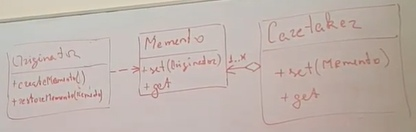 Originator
+createMemento()
+restoreMemento(Memento)
Memento
+set(Originator)
+get
1..*
Caretaker
+set(Memento)
+get